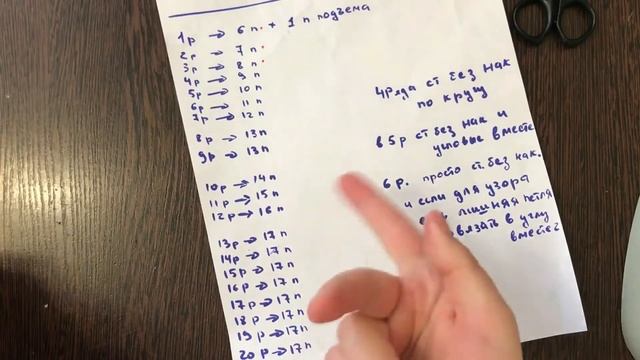 1р → 6 п. + 1 п подъема
2р → 7 п.
3р → 8 п.
4р → 9 п
5р → 10 п
6р → 11 п
7р → 12 п
8р → 13 п
9р → 13 п
10р → 14 п
11р → 15 п
12р → 16 п
13р → 17 п
14р → 17 п
15р → 17 п
16р → 17 п
17р → 17 п
18р → 17 п
19р → 17 п
20р → 17 п
4 Ряда ст. без нак
по кругу
в 5р ст без нак и
угловые вместе
6 р. просто ст. без нак.
и если для узора
лишняя петля
вязать в углу
вместе 2